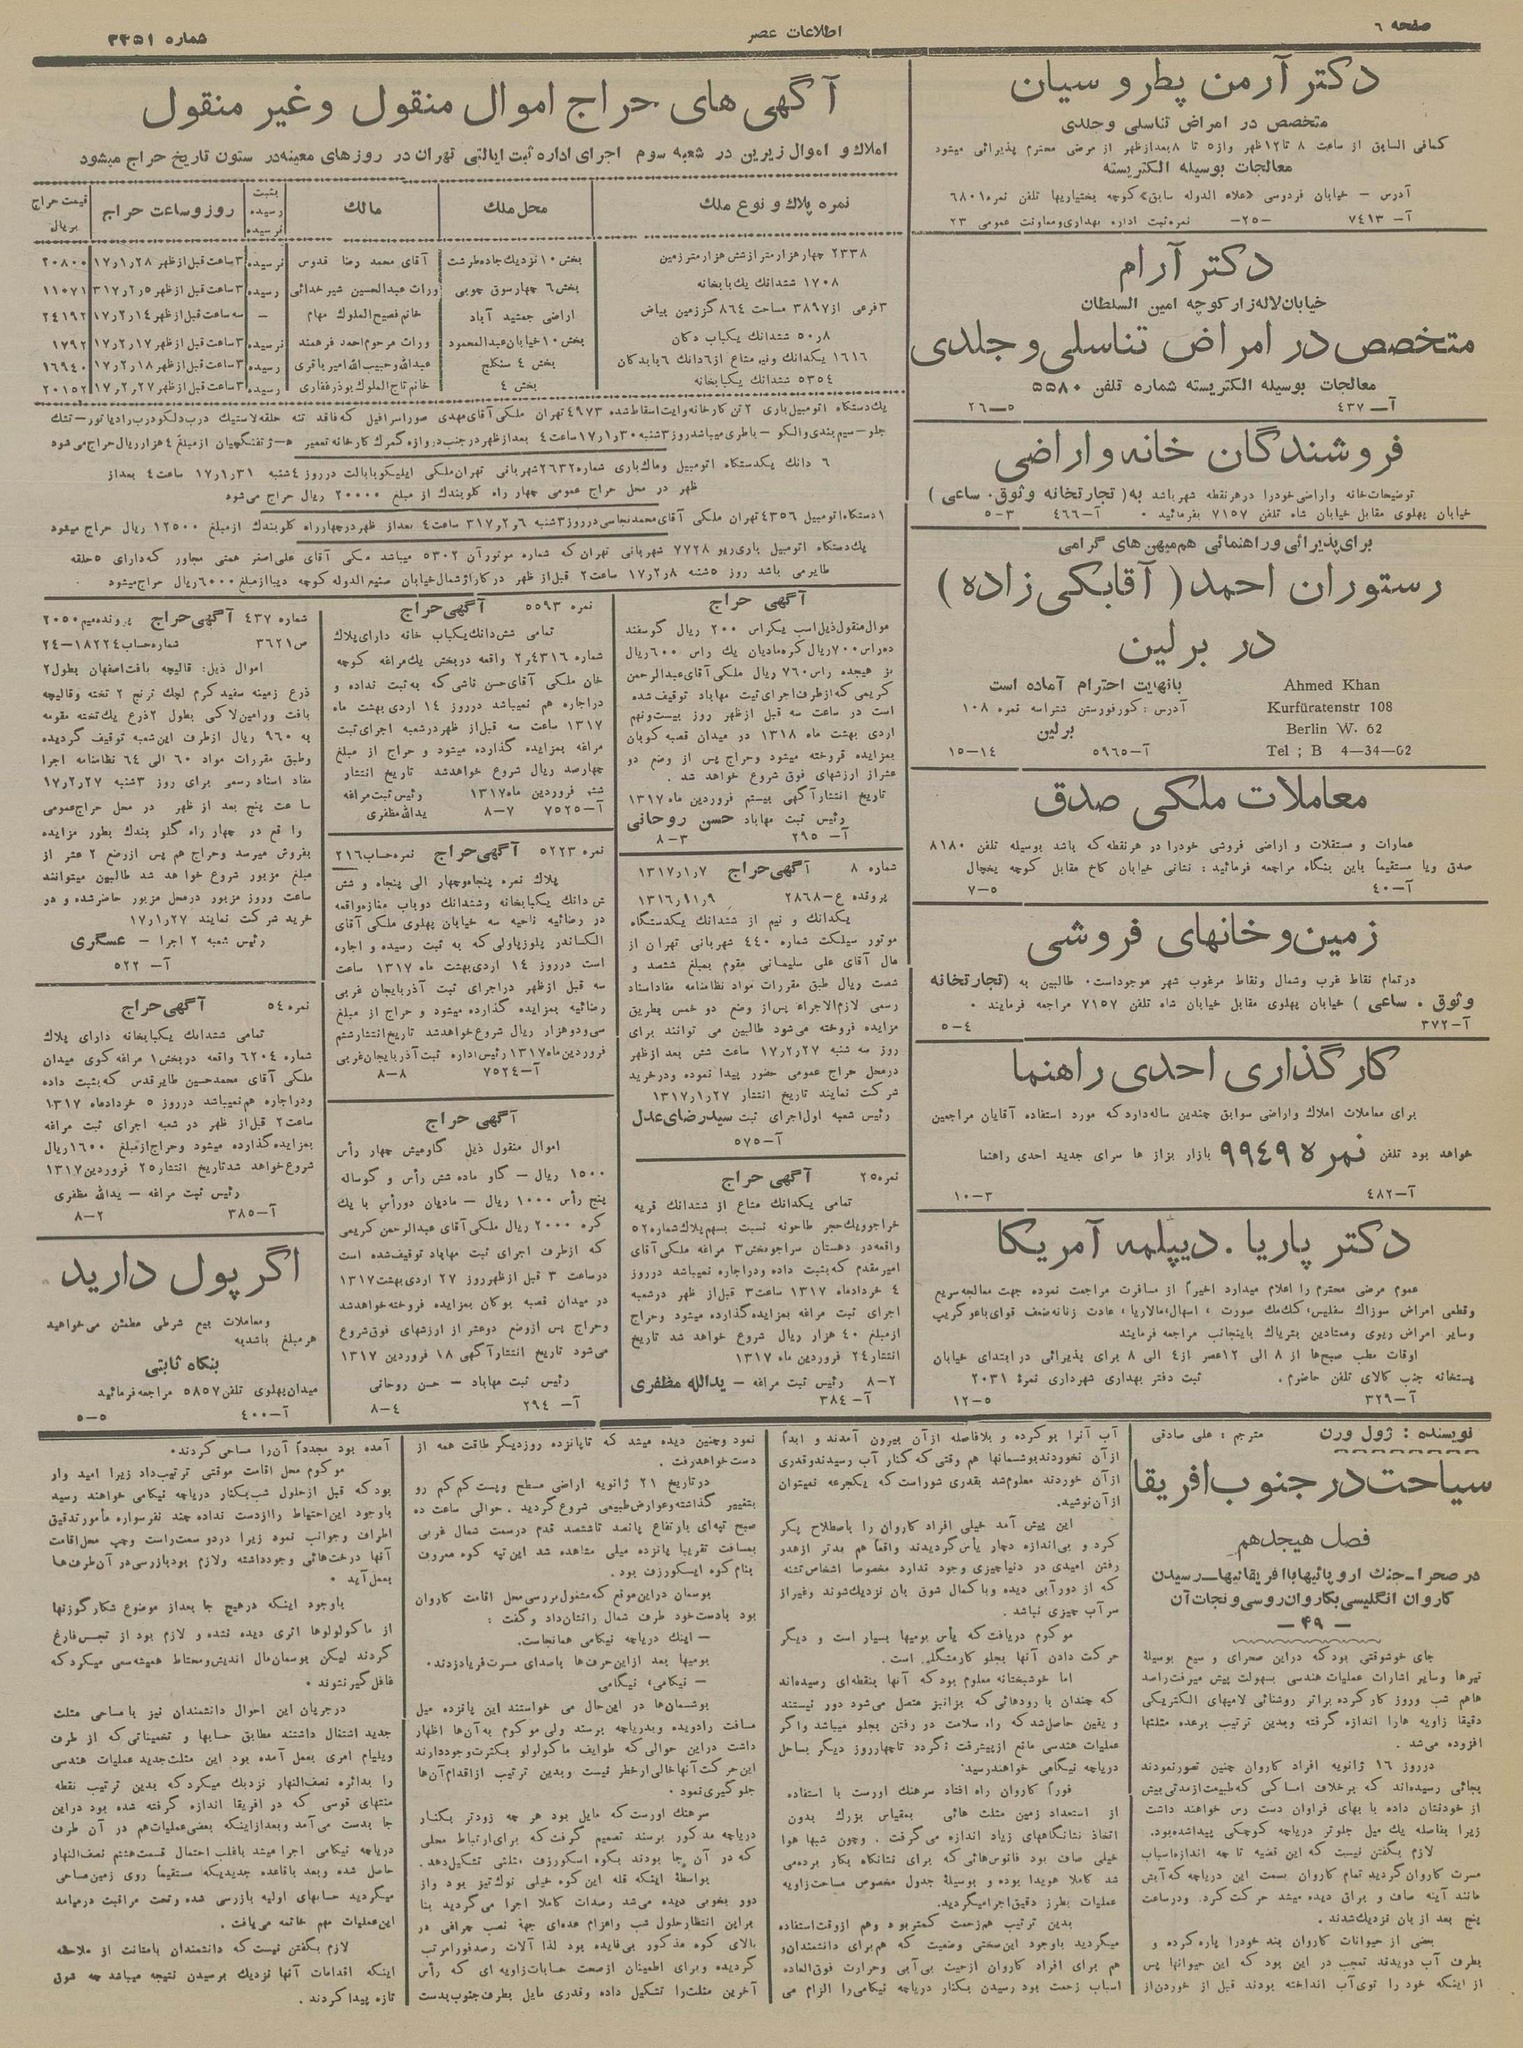 صفحه ٦
اطلاعات عصر
شماره ۳۳۵۱
دکتر آرمن پطروسیان
متخصص در امراض تناسلی وجلدی
کمافی السابق از ساعت ۸ تا۱۲ظهر واز٥ تا ۸بعدازظهر از مرضی محترم پذیرائی میشود
معالجات بوسیله الکتریسته
آدرس – خیابان فردوسی «علاء الدوله سابق» کوچه بختیاریها تلفن نمره ٦۸۰۱
آ– ۷٤۱۳ –۲٥– نمره ثبت اداره بهداری ومعاونت عمومی ۲۳
دکتر آرام
خیابان لاله زار کوچه امین السلطان
متخصص در امراض تناسلی وجلدی
معالجات بوسیله الکتریسته شماره تلفن ٥٥۸۰
آ– ٤۳۷ ٥–۲٦
فروشندگان خانه واراضی
توضیحات خانه واراضی خودرا درهرنقطه شهر باشد به ( تجارتخانه وثوق. ساعی )
خیابان پهلوی مقابل خیابان شاه تلفن ۷۱٥۷ بفرمائید . آ–٤٦٦ ۳–٥
برای پذیرائی وراهنمائی هم میهن های گرامی
رستوران احمد ( آقابکی زاده )
در برلین
بانهایت احترام آماده است
آدرس : کورفورستن شتراسه نمره ۱۰۸
برلین
آ–٥۹٦٥ ۱٤–۱٥
Ahmed Khan
Kurfüratenstr 108
Berlin W. 62
Tel ; B 4—34—02
معاملات ملکی صدق
عمارات و مستقلات و اراضی فروشی خودرا در هرنقطه که باشد بوسیله تلفن ۸۱۸۰
صدق ویا مستقیماً باین بنگاه مراجعه فرمائید : نشانی خیابان کاخ مقابل کوچه یخچال
آ–٤۰ ٥–۷
زمین وخانهای فروشی
درتمام نقاط غرب وشمال ونقاط مرغوب شهر موجوداست. طالبین به (تجارتخانه
وثوق . ساعی ) خیابان پهلوی مقابل خیابان شاه تلفن ۷۱٥۷ مراجعه فرمایند .
آ–۳۷۲ ٤–٥
کارگذاری احدی راهنما
برای معاملات املاك واراضی سوابق چندین ساله دارد که مورد استفاده آقایان مراجعین
خواهد بود تلفن نمره ۹۹٤۹ بازار بزاز ها سرای جدید احدی راهنما
آ–٤۸۲ ۳–۱۰
دکتر پاریا . دیپلمه آمریکا
عموم مرضی محترم را اعلام میدارد اخیراً از مسافرت مراجعت نموده جهت معالجه سریع
وقطعی امراض سوزاك سفلیس، کك مك صورت ، اسهال، مالاریا، عادت زنانه ضعف قوای باعو گریپ
وسایر امراض ریوی ومعتادین بتریاك باینجانب مراجعه فرمایند
اوقات مطب صبح ها از ۸ الی ۱۲عصر از٤ الی ۸ برای پذیرائی در ابتدای خیابان
پستخانه جنب کالای تلفن حاضرم . ثبت دفتر بهداری شهرداری نمرهٔ ۲۰۳۱
آ–۳۲۹ ٥–۱۲
آگهی های حراج اموال منقول وغیر منقول
املاك و اموال زیرین در شعبه سوم اجرای اداره ثبت ایالتی تهران در روزهای معینه در ستون تاریخ حراج میشود
نمره پلاك و نوع ملك | محل ملك | مالك | بثبت رسیده نرسیده | روز وساعت حراج | قیمت حراج بریال
۲۳۳۸ چهار هزار متر ازشش هزار متر زمین | بخش ۱۰ نزدیك جاده طرشت | آقای محمد رضا قدوس | نرسیده | ۳ساعت قبل از ظهر ۲۸ر۱ر۱۷ | ۲۰۸۰۰
۱۷۰۸ ششدانك یك بابخانه | بخش ٦ چهارسوق چوبی | وراث عبدالحسین شیر خدائی | رسیده | ۳ساعت قبل از ظهر ٥ر۲ر۳۱۷ | ۱۱۰۷۱
۳فرعی از ۳۸۹۷ مساحت ۸٦٤ گززمین بیاض | اراضی جمشید آباد | خانم فصیح الملوك مهام | – | سه ساعت قبل از ظهر ۱٤ر۲ر۱۷ | ۲٤۱۹۲
۸ر٥۰ ششدانك یکباب دکان | بخش ۱۰خیابان عبدالمحمود | وراث مرحوم احمد فرهمند | نرسیده | ۳ساعت قبل از ظهر ۱۷ر۲ر۱۷ | ۱۷۹۲
۱٦۱٦ یکدانك ونیم متاع از ٦دانك ٦بابدکان | بخش ٤ سنگلج | عبدالله وحبیب الله امیر باقری | رسیده | ۳ساعت قبل از ظهر ۱۸ر۲ر۱۷ | ۱٦۹٤۰
٥۳٥٤ ششدانك یکبابخانه | بخش ٤ | خانم تاج الملوك بوذر غفاری | رسیده | ۳ساعت قبل از ظهر ۲۷ر۲ر۱۷ | ۲۰۱٥۲
یك دستگاه اتومبیل باری ۲ تن کارخانه وایت اسقاط شده ٤۹۷۳ تهران ملکی آقای مهدی صور اسرافیل که فاقد تنه حلقه لاستیك درب دلکو درب رادیاتور – تشك
جلو – سیم بندی والکو – باطری میباشد روز ۳شنبه ۳۰ر۱ر۱۷ ساعت ٤ بعداز ظهر در جنب دروازه گمرك کارخانه تعمیر ه – ژ تفنگچیان از مبلغ ٤ هزار ریال حراج می شود
٦ دانك یکدستگاه اتومبیل وماك باری شماره ۲٦۳۲ شهربانی تهران ملکی ایلیکو بابالت در روز ٤شنبه ۳۱ر۱ر۱۷ ساعت ٤ بعداز
ظهر در محل حراج عمومی چهار راه کلوبندك از مبلغ ۲۰۰۰۰ ریال حراج می شود
۱ دستگاه اتومبیل ٤۳٥٦ تهران ملکی آقای محمد نجاسی در روز ۳شنبه ٦ر۲ر۳۱۷ ساعت ٤ بعداز ظهر در چهار راه کلوبندك از مبلغ ۱۲٥۰۰ ریال حراج میشود
یك دستگاه اتومبیل باری ریو ۷۷۲۸ شهربانی تهران که شماره موتور آن ٥۳۰۲ میباشد ملکی آقای علی اصغر همتی مجاور که دارای ٥ حلقه
طایر می باشد روز ٥شنبه ۸ر۲ر۱۷ ساعت ۲ قبل از ظهر در کاراژ شمال خیابان صنیع الدوله کوچه دیبا از مبلغ ٦۰۰۰ ریال حراج میشود
آگهی حراج
موال منقول ذیل اسب یکراس ۲۰۰ ریال گوسفند
ده راس ۷۰۰ ریال کره مادیان یك راس ٦۰۰ ریال
بز هیجده راس ۷٦۰ ریال ملکی آقای عبدالرحمن
کریمی که از طرف اجرای ثبت مهاباد توقیف شده
است در ساعت سه قبل از ظهر روز بیست ونهم
اردی بهشت ماه ۱۳۱۸ در میدان قصبه کوبان
بمزایده فروخته میشود وحراج پس از وضع دو
عشر از ارزشهای فوق شروع خواهد شد .
تاریخ انتشار آگهی بیستم فروردین ماه ۱۳۱۷
رئیس ثبت مهاباد حسن روحانی
آ– ۲۹٥ ۳–۸
شماره ۸ آگهی حراج ۱۳۱۷ر۱ر۷
پرونده ع–۲۸٦۸ ۱۳۱٦ر۱۱ر۹
یکدانك و نیم از ششدانك یکدستگاه
موتور سیکلت شماره ٤٤۰ شهربانی تهران از
مال آقای علی سلیمانی مقوم بمبلغ ششصد و
شصت ریال طبق مقررات مواد نظامنامه مفاد اسناد
رسمی لازم الاجراء پس از وضع دو خمس بطریق
مزایده فروخته می شود طالبین می توانند برای
روز سه شنبه ۲۷ر۲ر۱۷ ساعت شش بعد از ظهر
در محل حراج عمومی حضور پیدا نموده ودر خرید
شرکت نمایند تاریخ انتشار ۱۳۱۷ر۱ر۲۷
رئیس شعبه اول اجرای ثبت سیدرضای عدل
آ–٥۷٥
نمره ۲٥ آگهی حراج
تمامی یکدانك متاع از ششدانك قریه
خراجو ویك حجر طاحونه نسبت بسهم پلاك شماره ٥۲
واقعه در دهستان سراجو بخش ۳ مراغه ملکی آقای
امیر مقدم که بثبت داده ودر اجاره نمیباشد در روز
٤ خردادماه ۱۳۱۷ ساعت ۳ قبل از ظهر در شعبه
اجرای ثبت مراغه بمزایده گذارده میشود وحراج
از مبلغ ٤۰ هزار ریال شروع خواهد شد تاریخ
انتشار ۲٤ فروردین ماه ۱۳۱۷
۲–۸ رئیس ثبت مراغه – یدالله مظفری
آ– ۳۸٤
نمره ٥٥۹۳ آگهی حراج
تمامی شش دانك یکباب خانه دارای پلاك
شماره ٤۳۱٦ر۲ واقعه در بخش یك مراغه کوچه
خان ملکی آقای حسن تاشی که به ثبت نداده و
در اجاره هم نمیباشد در روز ۱٤ اردی بهشت ماه
۱۳۱۷ ساعت سه قبل از ظهر در شعبه اجرای ثبت
مراغه بمزایده گذارده میشود و حراج از مبلغ
چهارصد ریال شروع خواهد شد تاریخ انتشار
ششم فروردین ماه ۱۳۱۷ رئیس ثبت مراغه
آ–۷٥۲٥ ۷–۸ یدالله مظفری
نمره ٥۲۲۳ آگهی حراج نمره حساب ۲۱٦
پلاك نمره پنجاه وچهار الی پنجاه و شش
ش دانك یکبابخانه وششدانك دوباب مغازه واقعه
در رضائیه ناحیه سه خیابان پهلوی ملکی آقای
الکساندر پلوزپاولی که به ثبت رسیده و اجاره
است در روز ۱٤ اردی بهشت ماه ۱۳۱۷ ساعت
سه قبل از ظهر در اجرای ثبت آذربایجان غربی
رضائیه بمزایده گذارده میشود و حراج از مبلغ
سی ودوهزار ریال شروع خواهد شد تاریخ انتشار ششم
فروردین ماه ۱۳۱۷ رئیس اداره ثبت آذربایجان غربی
آ–۷٥۲٤ ۸–۸
آگهی حراج
اموال منقول ذیل گاومیش چهار رأس
۱٥۰۰ ریال – گاو ماده شش رأس و گوساله
پنج رأس ۱۰۰۰ ریال – مادیان دورأس با یك
کره ۲۰۰۰ ریال ملکی آقای عبدالرحمن کریمی
که از طرف اجرای ثبت مهاباد توقیف شده است
در ساعت ۳ قبل از ظهر روز ۲۷ اردی بهشت ۱۳۱۷
در میدان قصبه بوکان بمزایده فروخته خواهد شد
وحراج پس از وضع دو عشر از ارزشهای فوق شروع
می شود تاریخ انتشار آگهی ۱۸ فروردین ۱۳۱۷
رئیس ثبت مهاباد – حسن روحانی
آ– ۲۹٤ ٤–۸
شماره ٤۳۷ آگهی حراج پرونده میم ۲۰٥۰
ص ۳٦۲۱ شماره حساب ۱۸۲۲٤–۲٤
اموال ذیل: قالیچه بافت اصفهان بطول ۲
ذرع زمینه سفید کرم لچك ترنج ۲ تخته وقالیچه
بافت ورامین لاکی بطول ۲ ذرع یك تخته مقومه
به ۹٦۰ ریال از طرف این شعبه توقیف گردیده
وطبق مقررات مواد ٦۰ الی ٦٤ نظامنامه اجرا
مفاد اسناد رسمی برای روز ۳شنبه ۲۷ر۲ر۱۷
سا عت پنج بعد از ظهر در محل حراج عمومی
وا قع در چهار راه گلو بندك بطور مزایده
بفروش میرسد وحراج هم پس از وضع ۲ عشر از
مبلغ مزبور شروع خوا هد شد طالبین میتوانند
ساعت وروز مزبور در محل مزبور حاضر شده و در
خرید شرکت نمایند ۲۷ر۱ر۱۷
رئیس شعبه ۲ اجرا – عسگری
آ– ٥۲۲
نمره ٥٤ آگهی حراج
تمامی ششدانك یکبابخانه دارای پلاك
شماره ٦۲۰٤ واقعه در بخش ۱ مراغه کوی میدان
ملکی آقای محمدحسین طایر قدس که بثبت داده
ودر اجاره هم نمیباشد در روز ٥ خردادماه ۱۳۱۷
ساعت ۲ قبل از ظهر در شعبه اجرای ثبت مراغه
بمزایده گذارده میشود وحراج از مبلغ ۱٦۰۰ ریال
شروع خواهد شد تاریخ انتشار ۲٥ فروردین ۱۳۱۷
رئیس ثبت مراغه – یدالله مظفری
آ–۳۸٥ ۲–۸
اگر پول دارید
ومعاملات بیع شرطی مطمئن می خواهید
هر مبلغ باشد به
بنگاه ثابتی
میدان پهلوی تلفن ٥۸٥۷ مراجعه فرمائید
آ–٤۰۰ ٥–٥
نویسنده : ژول ورن مترجم : علی صادقی
سیاحت در جنوب افریقا
فصل هیجدهم
در صحرا – جنك اروپائیها با افریقائیها – رسیدن
کاروان انگلیسی بکاروان روسی ونجات آن
– ٤۹ –
جای خوشوقتی بود که دراین صحرای و سیع بوسیلهٔ
تیرها وسایر اشارات عملیات هندسی بسهولت پیش میرفت راصد
هاهم شب وروز کار کرده براثر روشنائی لامپهای الکتریکی
دقیقا زاویه هارا اندازه گرفته وبدین ترتیب برعده مثلثها
افزوده می شد .
درروز ۱٦ ژانویه افراد کاروان چنین تصور نمودند
بجائی رسیده اند که برخلاف اماکنی که طبیعت از مدتی پیش
از خودنشان داده با بهای فراوان دست رس خواهند داشت
زیرا بفاصله یك میل جلوتر دریاچه کوچکی پیدا شده بود.
لازم بگفتن نیست که این قضیه تا چه اندازه اسباب
مسرت کاروان گردید تمام کاروان بسمت این دریاچه که آبش
مانند آینه صاف و براق دیده میشد حرکت کرد. ودر ساعت
پنج بعد از بان نزدیك شدند .
بعضی از حیوانات کاروان بند خود را پاره کرده و
بطرف آب دویدند تعجب در این بود که این حیوانها پس
از اینکه خود را توی آب انداخته بودند قبل از خوردن از
آب آنرا بو کرده و بلافاصله از آن بیرون آمدند و ابداً
از آن نخوردند بوشمانها هم وقتی که کنار آب رسیدند وقدری
از آن خوردند معلوم شد بقدری شور است که یکجرعه نمیتوان
از آن نوشید.
این پیش آمد خیلی افراد کاروان را باصطلاح پکر
کرد و بی اندازه دچار یأس گردیدند واقعاً هم بدتر از هدو
رفتن امیدی در دنیا چیزی وجود ندارد مخصوصا اشخاص تشنه
که از دور آبی دیده وبا کمال شوق بان نزدیك شوند وغیر از
سر آب چیزی نباشد .
مو کوم دریافت که یأس بومیها بسیار است و دیگر
حرکت دادن آنها بجلو کار مشگلی است .
اما خوشبختانه معلوم بود که آنها بنقطه ای رسیده اند
که چندان با رودهائی که بزانبز متصل می شود دور نیستند
و یقین حاصل شد که راه سلامت در رفتن بجلو میباشد واگر
عملیات هندسی مانع از پیشرفت نگردد تا چهار روز دیگر بساحل
دریاچه نیگامی خواهند رسید.
فوراً کاروان راه افتاد سرهنك اورست با استفاده
از استعداد زمین مثلث هائی بمقیاس بزرك بدون
اتخاذ نشانگاههای زیاد اندازه می گرفت . وچون شبها هوا
خیلی صاف بود فانوس هائی که برای نشانگاه بکار برده می
شد کاملا هویدا بوده و بوسیلهٔ جدول مخصوص مساحت زاویه
عملیات بطرز دقیق اجرا میگردید.
بدین ترتیب هم زحمت کمتر بود وهم از وقت استفاده
میگردید باوجود این سختی وضعیت که هم برای دانشمندان و
هم برای افراد کاروان از حیث بی آبی وحرارت فوق العاده
اسباب زحمت بود رسیدن بکنار دریاچه نیکامی را الزام می
نمود وچنین دیده میشد که تا پانزده روز دیگر طاقت همه از
دست خواهد رفت .
درتاریخ ۲۱ ژانویه اراضی مسطح وپست کم کم رو
بتغییر گذاشته وعوارض طبیعی شروع گردید. حوالی ساعت ده
صبح تپه ای بارتفاع پانصد تا ششصد قدم در سمت شمال غربی
بمسافت تقریبا پانزده میلی مشاهده شد این تپه کوه معروف
بنام کوه ایسکورزف بود .
بوسمان دراین موقع که مشغول بررسی محل اقامت کاروان
بود بادست خود طرف شمال رانشان داد وگفت :
– اینك دریاچه نیکامی همانجاست.
بومیها بعد از این حرف ها باصدای مسرت فریاد زدند.
– نیکامی، نیگامی
بوشسمان ها در این حال می خواستند این پانزده میل
مسافت رادویده وبدریاچه برسند ولی مو کوم به آن ها اظهار
داشت دراین حوالی که طوایف ماکولولو بکثرت وجود دارند
این حرکت آنها خالی از خطر نیست وبدین ترتیب از اقدام آن ها
جلو گیری نمود .
سرهنك اورست که مایل بود هر چه زودتر بکنار
دریاچه مذکور برسند تصمیم گرفت که برای ارتباط محلی
که در آن جا بودند بکوه اسکورزف مثلثی تشکیل دهد .
بواسطهٔ اینکه قله این کوه خیلی نوك تیز بود واز
دور بخوبی دیده می شد رصدات کاملا اجرا می گردید بنا
براین انتظار حلول شب واعزام عده ای جههٔ نصب چراغی در
بالای کوه مذکور بی فایده بود لذا آلات رصد فورا مرتب
گردیده وبرای اطمینان از صحت حسابات زاویه ای که رأس
آخرین مثلث را تشکیل داده وقدری مایل بطرف جنوب بدست
آمده بود مجدداً آن را مساحی کردند.
مو کوم محل اقامت موقتی ترتیب داد زیرا امید وار
بود که قبل از حلول شب بکنار دریاچه نیکامی خواهند رسید
باوجود این احتیاط را ازدست نداده چند نفر سواره مأمور تدقیق
اطراف وجوانب نمود زیرا در دو سمت راست وچپ محل اقامت
آنها درخت هائی وجود داشته ولازم بود بازرسی در آن طرف ها
بعمل آید .
باوجود اینکه در هیچ جا بعداز موضوع شکار گوزنها
از ماکولولوها اثری دیده نشده و لازم بود از تجسس فارغ
گردند لیکن بوسمان مال اندیش ومحتاط همیشه سعی میکرد که
غافل گیر نشوند .
درجریان این احوال دانشمندان نیز با مساحی مثلث
جدید اشتغال داشتند مطابق حسابها و تخمیناتی که از طرف
ویلیام امری بعمل آمده بود این مثلث جدید عملیات هندسی
را بدائره نصف النهار نزدیك میکرد که بدین ترتیب نقطه
منتهای قوسی که در افریقا اندازه گرفته شده بود در این
جا بدست می آمد وبعد از اینکه بعضی عملیات هم در آن طرف
دریاچه نیکامی اجرا میشد باغلب احتمال قسمت هشتم نصف النهار
حاصل شده وبعد باقاعده جدیدیکه مستقیماً روی زمین مساحی
میگردید حسابهای اولیه بازرسی شده وتحت مراقبت درمیامد
این عملیات مهم خاتمه می یافت .
لازم بگفتن نیست که دانشمندان بامتانت از ملاحظه
اینکه اقدامات آنها نزدیك برسیدن نتیجه میباشد چه شوق
تازه پیدا کردند .